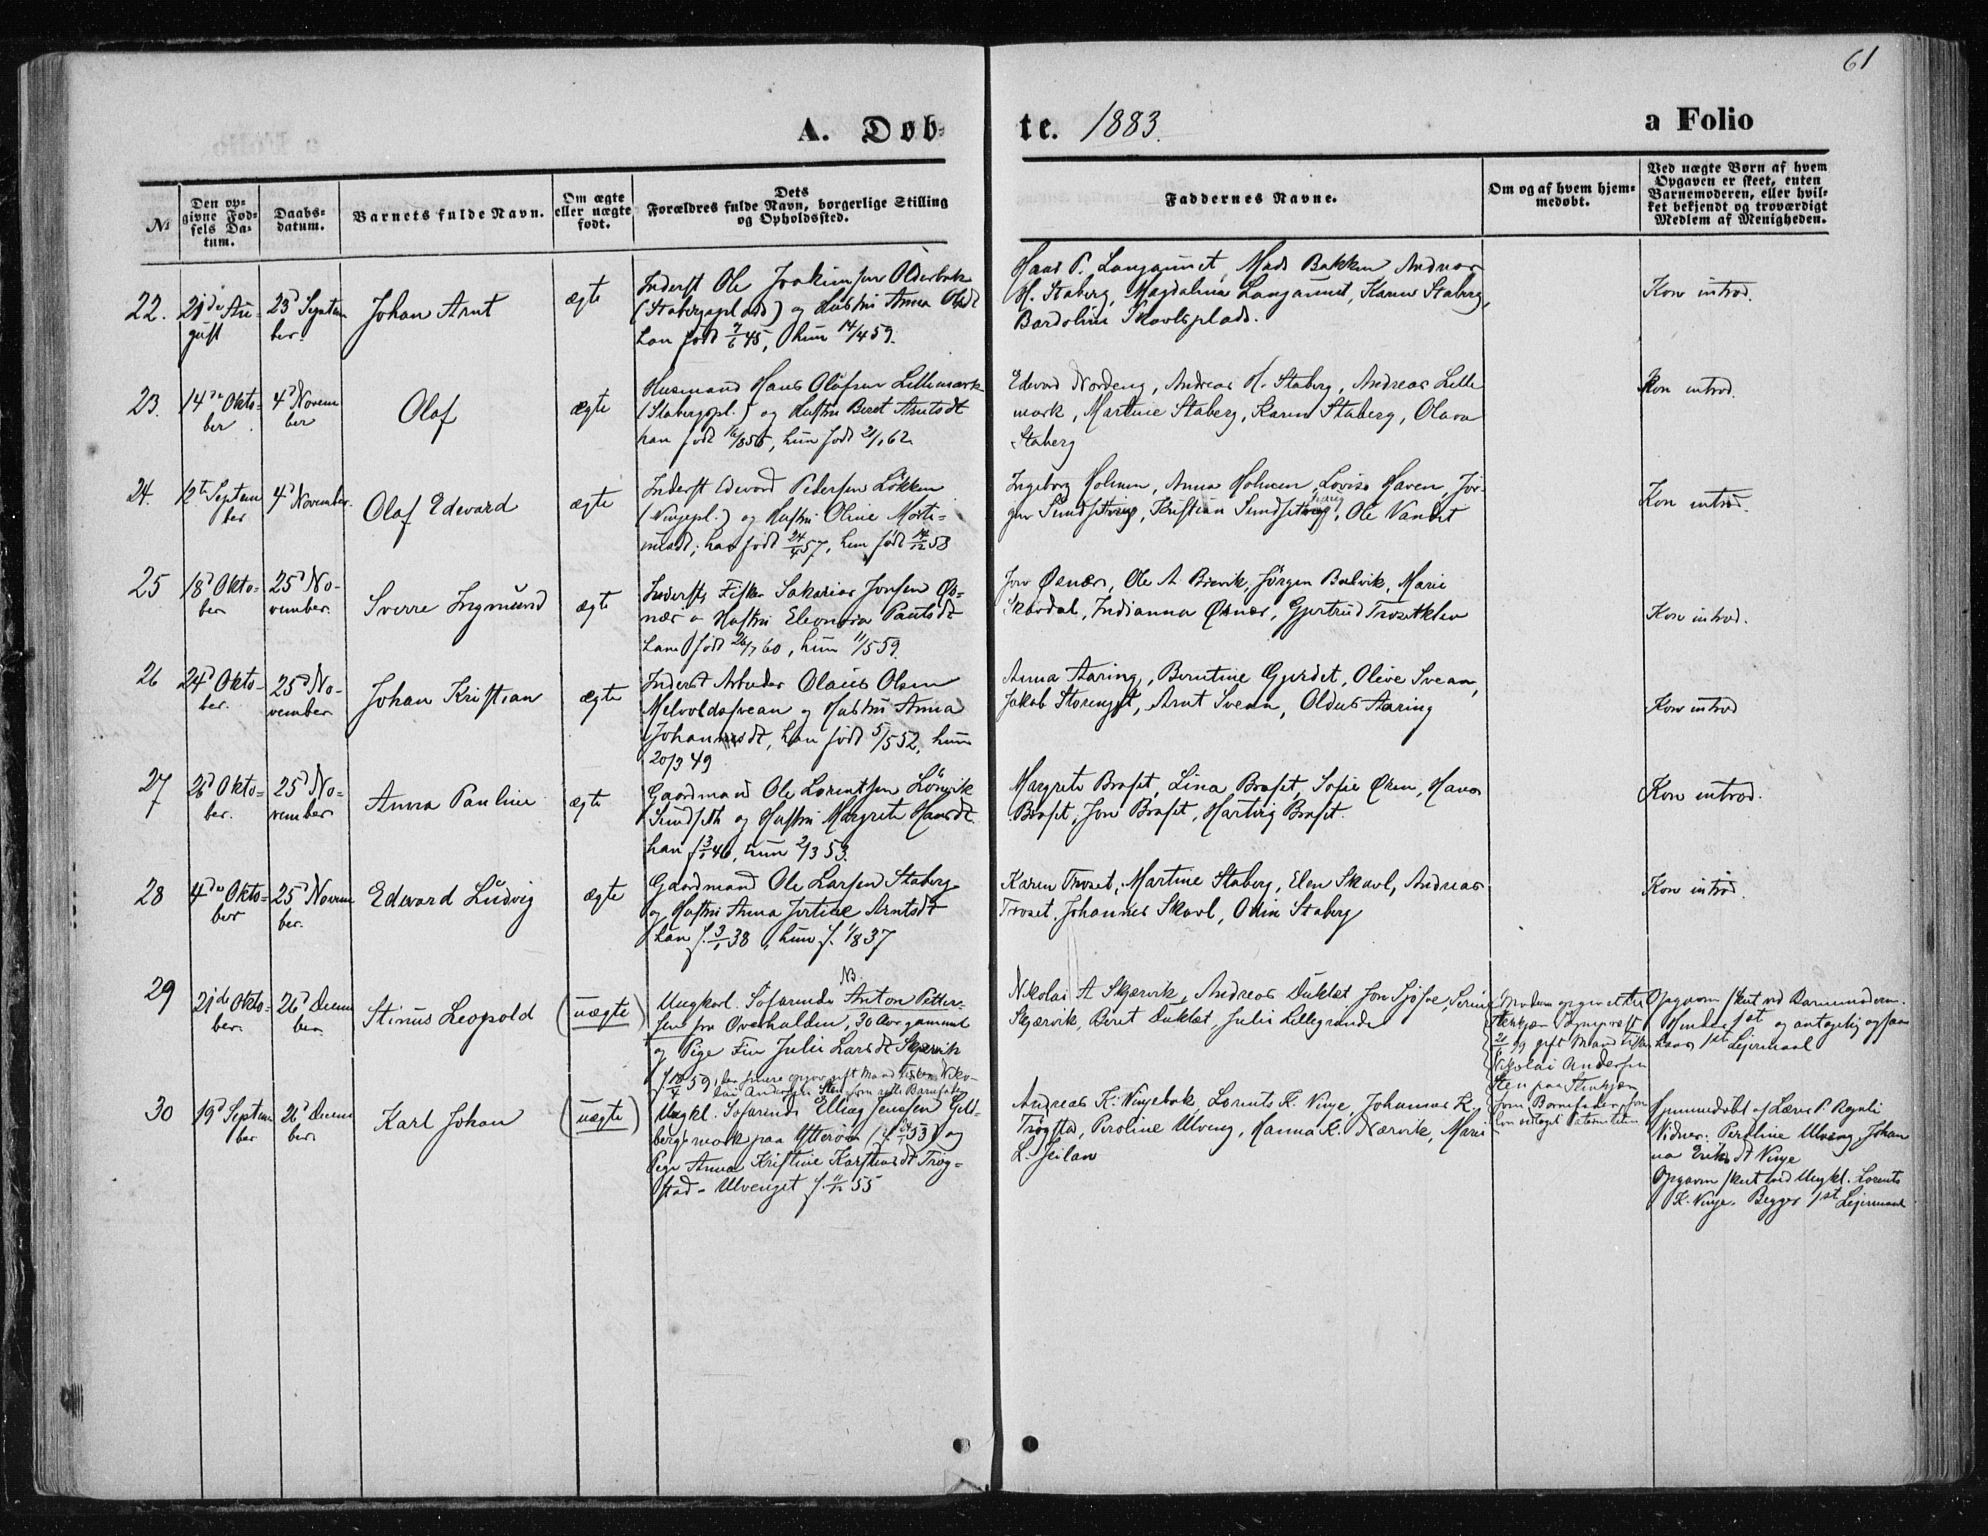 61
A. Døb-
te. 1883.
a Folio
№
Den op-
givne Fød-
sels Da-
tum.
Daabs-
datum.
Barnets fulde Navn.
Om ægte
eller uægte
født.
Dets
Forældres fulde Navn, borgerlige Stilling
og Opholdssted.
Faddernes Navne.
Om og af hvem hjem-
medøbt.
Ved uægte Børn af hvem
Opgaven er skeet, enten
Barnemoderen, eller hvil-
ket bekjendt og troværdigt
Medlem af Menigheden.
22.
21de Au-
gust
23d Septem
ber.
Johan Arnt
ægte
Inderst Ole Joakimsen Olderbak
(Stabergspl ads) og Hustru Anna Olsdt
han født 7/6 45, hun 14/4 59.
Hans P. Langaunet, Mads Bakken Andreas
H. Staberg, Magdalena Langaunet, Karen Staberg,
Bardoline Skavlsplads.
Kon introd.
23.
14de Okto-
ber
4d Novem
ber
Olaf
ægte
Husmand Hans Olafsen Lillemark
(Stabergspl.) og Hustru Beret Arntsdt
han født 55, hun født 21/1 62
Edvard Nordeng, Andreas H. Staberg, Andreas Lille
mark, Martine Staberg, Karen Staberg, Olava
Staberg
Kon introd.
24.
12te Septem
ber
4d November.
Olaf Edevard
ægte
Inderst Edevard Pedersen Løkken
(Vinjepl.) og Hustru Oline Morti-
nusdt; han født 24/4 57, hun født 14/12 58
Ingeborg Holmen, Anna Holmen, Lovise Haven, Jør-
gen Sundsetvaag, Kristian Sundset, Ole Vandet
Kon introd.
25
18d Okto-
ber
25d No-
vember.
Sverre Ingmund
ægte
Inderst, Fisker Sakarias Jonsen Øs-
næs o Hustru Eleonora Paulsdt
han født 26/7 60, hun 11/5 59.
Jon Øsnæs, Ole A. Brevik, Jørgen Bolvik, Marie
Skavdal, Indianna Øsnæs, Gjertrud Trosetklev
Kon introd.
26
24d Okto-
ber.
25d No-
vember
Johan Kristian
ægte
Inderst Arbeider Olaus Olsen
Melvoldssvean og Hustru Anna
Johannesdt, han født 5/5 52, hun
20/3 49
Anna Aaring, Berntine Gjerdet, Olive Svean,
Jakob Storenget, Arnt Svean, Oldus Aaring
Kon introd
27
26d Okto-
ber.
25d No-
vember
Anna Pauline
ægte
Gaardmand Ole Lorentsen Lønvik
Sundseth og Hustru Margrete Hansdt.
han f 3/1 46, hun 2/3 53.
Margrete Braset, Lina Braset, Sofie Øren, Hans
Braset, Jon Braset, Hartvig Braset.
Kon introd.
28
4de Okto-
ber
25d Novem
ber.
Edevard Ludvig
ægte
Gaardmand Ole Larsen Staberg
og Hustru Anna Jertine Arntsdt
han f. 3/1 38, hun f. 1/8 37
Karen Troset, Martine Staberg, Elen Skavl, Andreas
Troset, Johannes Skavl, Odin Staberg
Kon introd.
29
21de Okto-
ber.
26d Decem
ber
Stinus Leopold
(uægte)
NB.
Ungkarl. Søfarende Anton Petter-
sen fra Overhalden, 30 Aar gammel
og Pige Julie Larsdt Skjærvik
59, gift Mand Fisker Niko-
lai Andersen Sten som rette Barnefader
Nikolai A Skjærvik, Andreas Duklæt, Jon Sjøsve, Serine
Skjærvik, Beret Duklæt, Julie Lillegrande
Moderen opgiver
Stenkjær
gift Mand Fisker
Nikolai Andersen
Sten paa Stenkjær
som Barnefader,
Opgaven skeet ved Barnemoderen.
Hendes 1st og antagelig ogsaa
hans 1st Leiermaal
30
19d Septem
ber
26d Decem
ber.
Karl Johan
(uægte)
Ungkl. Søfarende Ellias Jensen Gild-
bergsmark paa Ytterøen og
Pige Anna Kristine Karstensdt Trøg-
stad - Ulvenget f. 55
Andreas K. Vinjebak, Lorents K. Vinje, Johannes K.
Trøgstad, Peroline Ulveng, Hanna K. Nærvik, Marie
L. Jeilan
Hjemmedøbt af Lærer P. Rognli
Vidner: Peroline Ulveng, Johan
na Eriksdt Vinje
Opgaven skeet ved Ungkl. Lorents
K. Vinje. Begges 1st Leiermaal